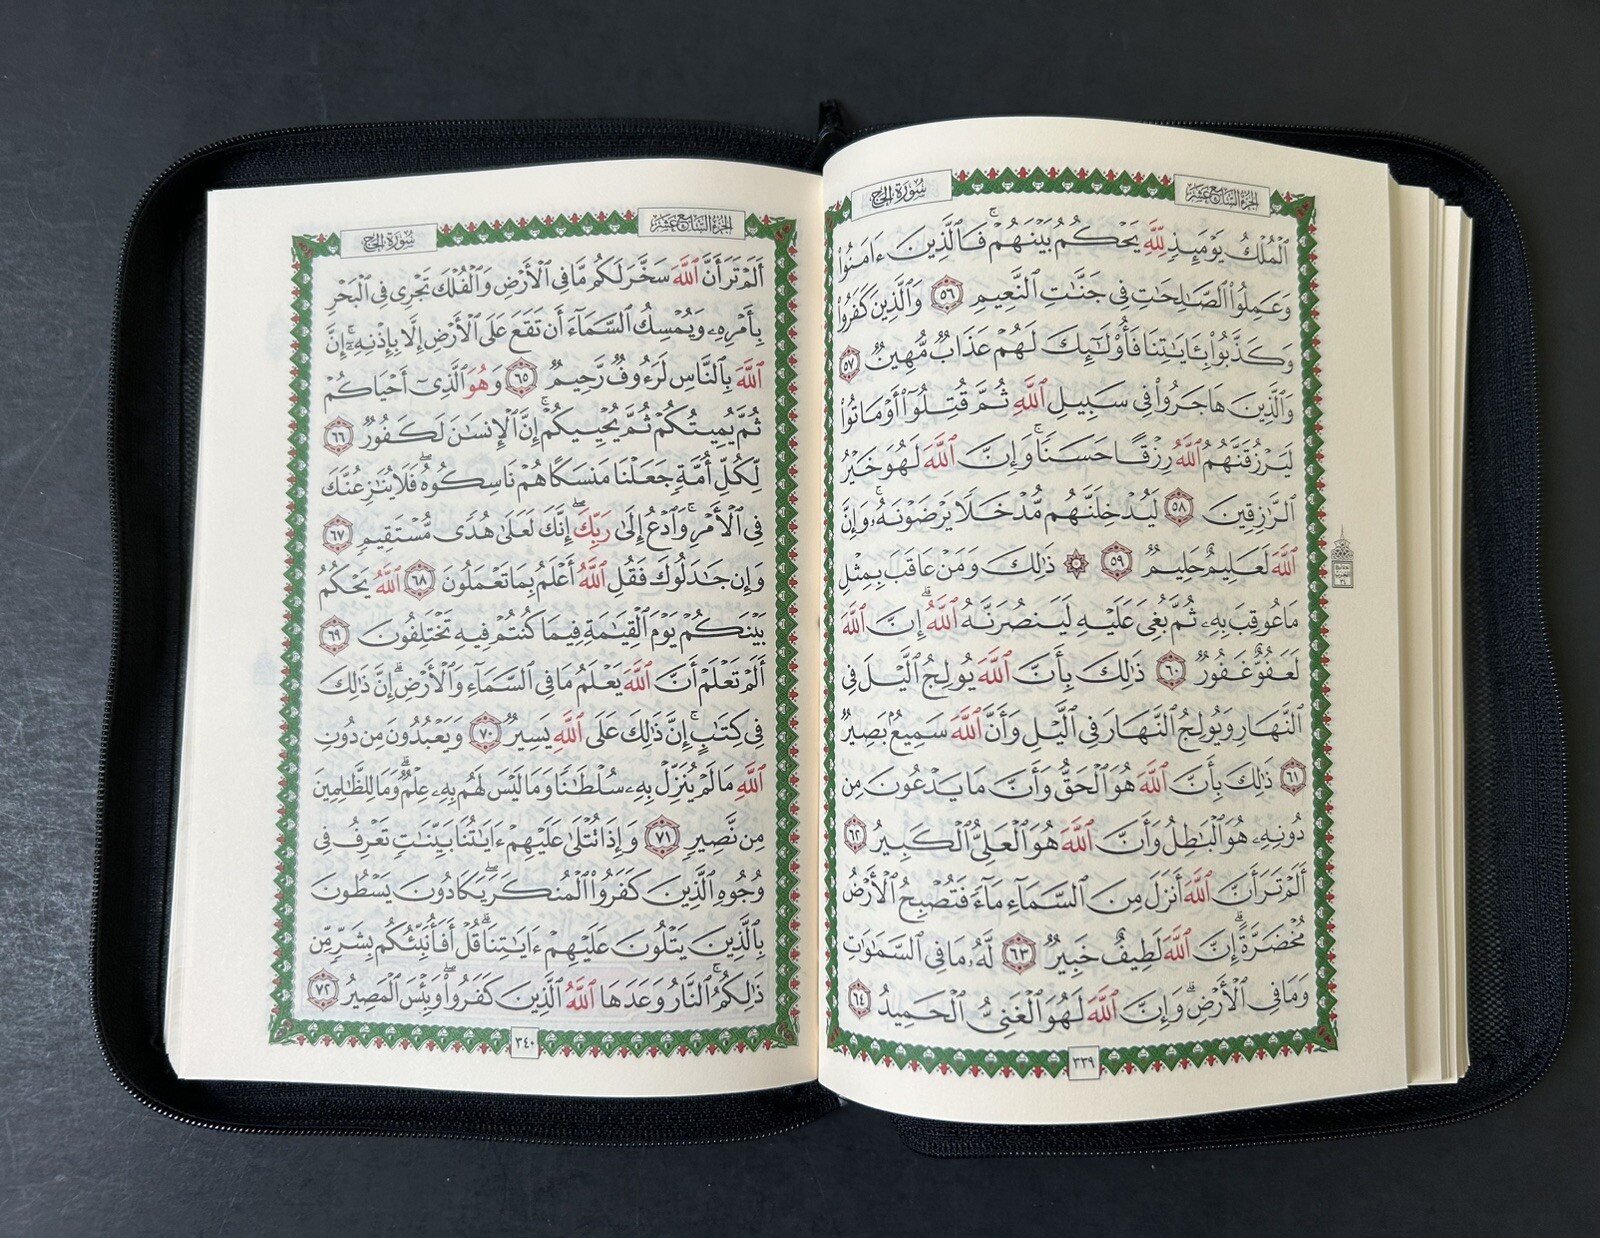 سُورَةُ الحَجِّ
الجُزْءُ السَّابِعَ عَشَرَ
ٱلْمُلْكُ يَوْمَئِذٍ لِّلَّهِ يَحْكُمُ بَيْنَهُمْ ۚ فَٱلَّذِينَ ءَامَنُوا۟
وَعَمِلُوا۟ ٱلصَّـٰلِحَـٰتِ فِى جَنَّـٰتِ ٱلنَّعِيمِ ٥٦ وَٱلَّذِينَ كَفَرُوا۟
وَكَذَّبُوا۟ بِـَٔايَـٰتِنَا فَأُو۟لَـٰٓئِكَ لَهُمْ عَذَابٌ مُّهِينٌ ٥٧
وَٱلَّذِينَ هَاجَرُوا۟ فِى سَبِيلِ ٱللَّهِ ثُمَّ قُتِلُوٓا۟ أَوْ مَاتُوا۟
لَيَرْزُقَنَّهُمُ ٱللَّهُ رِزْقًا حَسَنًا ۚ وَإِنَّ ٱللَّهَ لَهُوَ خَيْرُ
ٱلرَّٰزِقِينَ ٥٨ لَيُدْخِلَنَّهُم مُّدْخَلًا يَرْضَوْنَهُۥ ۗ وَإِنَّ
ٱللَّهَ لَعَلِيمٌ حَلِيمٌ ٥٩ ۞ ذَٰلِكَ وَمَنْ عَاقَبَ بِمِثْلِ
مَا عُوقِبَ بِهِۦ ثُمَّ بُغِىَ عَلَيْهِ لَيَنصُرَنَّهُ ٱللَّهُ ۗ إِنَّ ٱللَّهَ
لَعَفُوٌّ غَفُورٌ ٦٠ ذَٰلِكَ بِأَنَّ ٱللَّهَ يُولِجُ ٱلَّيْلَ فِى
ٱلنَّهَارِ وَيُولِجُ ٱلنَّهَارَ فِى ٱلَّيْلِ وَأَنَّ ٱللَّهَ سَمِيعٌۢ بَصِيرٌ
٦١ ذَٰلِكَ بِأَنَّ ٱللَّهَ هُوَ ٱلْحَقُّ وَأَنَّ مَا يَدْعُونَ مِن
دُونِهِۦ هُوَ ٱلْبَـٰطِلُ وَأَنَّ ٱللَّهَ هُوَ ٱلْعَلِىُّ ٱلْكَبِيرُ ٦٢
أَلَمْ تَرَ أَنَّ ٱللَّهَ أَنزَلَ مِنَ ٱلسَّمَآءِ مَآءً فَتُصْبِحُ ٱلْأَرْضُ
مُخْضَرَّةً ۗ إِنَّ ٱللَّهَ لَطِيفٌ خَبِيرٌ ٦٣ لَّهُۥ مَا فِى ٱلسَّمَـٰوَٰتِ
وَمَا فِى ٱلْأَرْضِ ۗ وَإِنَّ ٱللَّهَ لَهُوَ ٱلْغَنِىُّ ٱلْحَمِيدُ ٦٤
٣٣٩
سُورَةُ الحَجِّ
الجُزْءُ السَّابِعَ عَشَرَ
أَلَمْ تَرَ أَنَّ ٱللَّهَ سَخَّرَ لَكُم مَّا فِى ٱلْأَرْضِ وَٱلْفُلْكَ تَجْرِى فِى ٱلْبَحْرِ
بِأَمْرِهِۦ وَيُمْسِكُ ٱلسَّمَآءَ أَن تَقَعَ عَلَى ٱلْأَرْضِ إِلَّا بِإِذْنِهِۦٓ ۗ إِنَّ
ٱللَّهَ بِٱلنَّاسِ لَرَءُوفٌ رَّحِيمٌ ٦٥ وَهُوَ ٱلَّذِىٓ أَحْيَاكُمْ
ثُمَّ يُمِيتُكُمْ ثُمَّ يُحْيِيكُمْ ۗ إِنَّ ٱلْإِنسَـٰنَ لَكَفُورٌ ٦٦
لِّكُلِّ أُمَّةٍ جَعَلْنَا مَنسَكًا هُمْ نَاسِكُوهُ ۖ فَلَا يُنَـٰزِعُنَّكَ
فِى ٱلْأَمْرِ ۚ وَٱدْعُ إِلَىٰ رَبِّكَ ۖ إِنَّكَ لَعَلَىٰ هُدًى مُّسْتَقِيمٍ ٦٧
وَإِن جَـٰدَلُوكَ فَقُلِ ٱللَّهُ أَعْلَمُ بِمَا تَعْمَلُونَ ٦٨ ٱللَّهُ يَحْكُمُ
بَيْنَكُمْ يَوْمَ ٱلْقِيَـٰمَةِ فِيمَا كُنتُمْ فِيهِ تَخْتَلِفُونَ ٦٩
أَلَمْ تَعْلَمْ أَنَّ ٱللَّهَ يَعْلَمُ مَا فِى ٱلسَّمَآءِ وَٱلْأَرْضِ ۗ إِنَّ ذَٰلِكَ
فِى كِتَـٰبٍ ۚ إِنَّ ذَٰلِكَ عَلَى ٱللَّهِ يَسِيرٌ ٧٠ وَيَعْبُدُونَ مِن دُونِ
ٱللَّهِ مَا لَمْ يُنَزِّلْ بِهِۦ سُلْطَـٰنًا وَمَا لَيْسَ لَهُم بِهِۦ عِلْمٌ ۗ وَمَا لِلظَّـٰلِمِينَ
مِن نَّصِيرٍ ٧١ وَإِذَا تُتْلَىٰ عَلَيْهِمْ ءَايَـٰتُنَا بَيِّنَـٰتٍ تَعْرِفُ فِى
وُجُوهِ ٱلَّذِينَ كَفَرُوا۟ ٱلْمُنكَرَ ۖ يَكَادُونَ يَسْطُونَ
بِٱلَّذِينَ يَتْلُونَ عَلَيْهِمْ ءَايَـٰتِنَا ۗ قُلْ أَفَأُنَبِّئُكُم بِشَرٍّ مِّن
ذَٰلِكُمُ ۗ ٱلنَّارُ وَعَدَهَا ٱللَّهُ ٱلَّذِينَ كَفَرُوا۟ ۖ وَبِئْسَ ٱلْمَصِيرُ ٧٢
٣٤٠